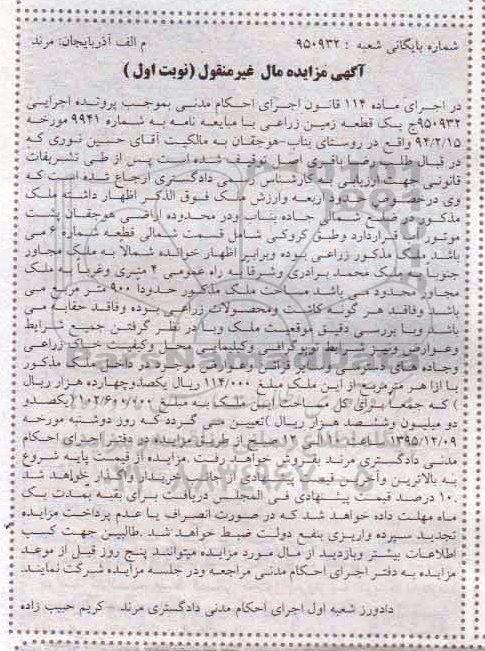 شماره بایگانی شعبه : ۹۵۰۹۳۲
م الف آذربایجان: مرند
آگهی مزایده مال غیرمنقول (نوبت اول)
در اجرای ماده ۱۱۴ قانون اجرای احکام مدنی بموجب پرونده اجرایی
۹۵۰۹۳۲ج یک قطعه زمین زراعی با مبایعه نامه به شماره ۹۹۴۱ مورخه
۹۴/۲/۱۵ واقع در روستای بناب-هوجقان به مالکیت آقای حسین نوری که
در قبال طلب رضا باقری اصل توقیف شده است پس از طی تشریفات
قانونی جهت ارزیابی به کارشناس رسمی دادگستری ارجاع شده است که
وی درخصوص حدود اربعه وارزش ملک فوق الذکر اظهار داشته ملک
مذکور در ضلع شمالی جاده بناب ودر محدوده اراضی هوجقان پشت
موتور آب قراردارد وطبق کروکی شامل قسمت شمالی قطعه شماره ۶ می
باشد ملک مذکور زراعی بوده وبرابر اظهار خوانده شمالاً به ملک مجاور
جنوباً به ملک محمد برادری وشرقاً به راه عمومی ۴ متری وغرباً به ملک
مجاور محدود می باشد مساحت ملک مذکور حدودا ۹۰۰ متر مربع می
باشد وفاقد هر گونه کاشت ومحصولات زراعی بوده وفاقد حقابه می
باشد وبا بررسی دقیق موقعیت ملک وبا در نظر گرفتن جمیع شرایط
وعوارض ونیز شرایط توپوگرافی وکلیمایی محل وکیفیت خاک زراعی
وجاده های دسترسی وسایر قرائن وعوارض موجود در داخل ملک مذکور
با ازا هر مترمربع از این ملک مبلغ ۱۱۴/۰۰۰ ریال یکصدوچهارده هزار ریال
) که جمعاً برای کل مساحت این ملک به مبلغ ۱۰۲/۶۰۰/۰۰۰ (یکصدو
دو میلیون وششصد هزار ریال )تعیین می گردد که روز دوشنبه مورخه
۱۳۹۵/۱۲/۰۹ از ساعت ۱۰الی ۱۲ صبح از طریق مزایده در دفتر اجرای احکام
مدنی دادگستری مرند بفروش خواهد رفت .مزایده از قیمت پایه شروع
به بالاترین وآخرین قیمت پیشنهادی از جانب خریدار واگذار خواهد شد
.۱۰ درصد قیمت پیشنهادی فی المجلس دریافت برای بقیه بمدت یک
ماه مهلت داده خواهد شد که در صورت انصراف یا عدم پرداخت مزایده
تجدید سپرده واریزی بنفع دولت ضبط خواهد شد .طالبین جهت کسب
اطلاعات بیشتر وبازدید از مال مورد مزایده میتوانند پنج روز قبل از موعد
مزایده به دفتر اجرای احکام مدنی مراجعه ودر جلسه مزایده شرکت نمایند.
دادورز شعبه اول اجرای احکام مدنی دادگستری مرند - کریم حبیب زاده